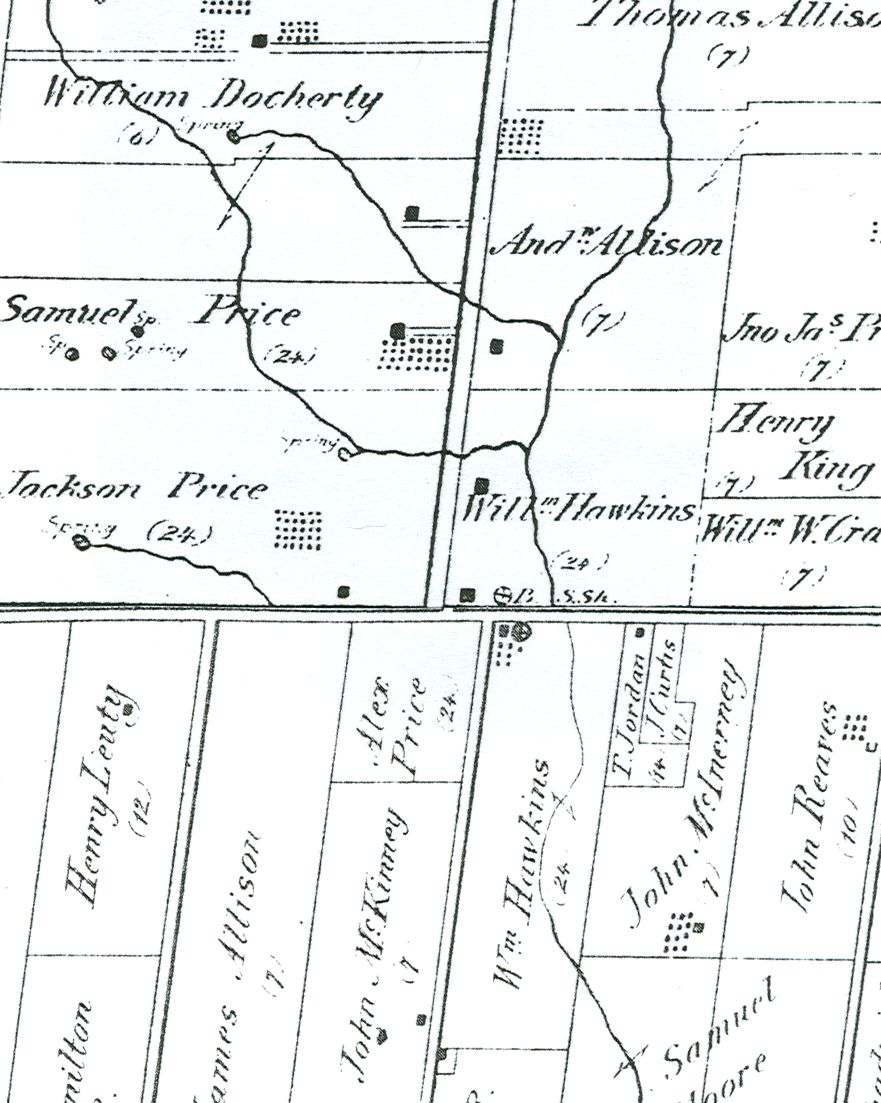 Thomas Alliso
(7)
William Docherty
(6)
Spring
And.w Allison
(7)
Samuel Price
Sp.
Sp
Spring
(24)
Jno Ja.s Pr
(7)
Henry
King
(7)
Spring
Jackson Price
Spring
(24)
Will.m Hawkins
(24)
Will.m W. Cra
(7)
B. S. Sh.
Henry Lieuty
(12)
James Allison
(7)
Alex
Price
(24)
John McKinney
(7
Wm Hawkins
(24
T. Jordan
(14)
J. Curtis
(7)
John McInerney
(7)
John Reaves
(10)
Samuel
Moore
milton